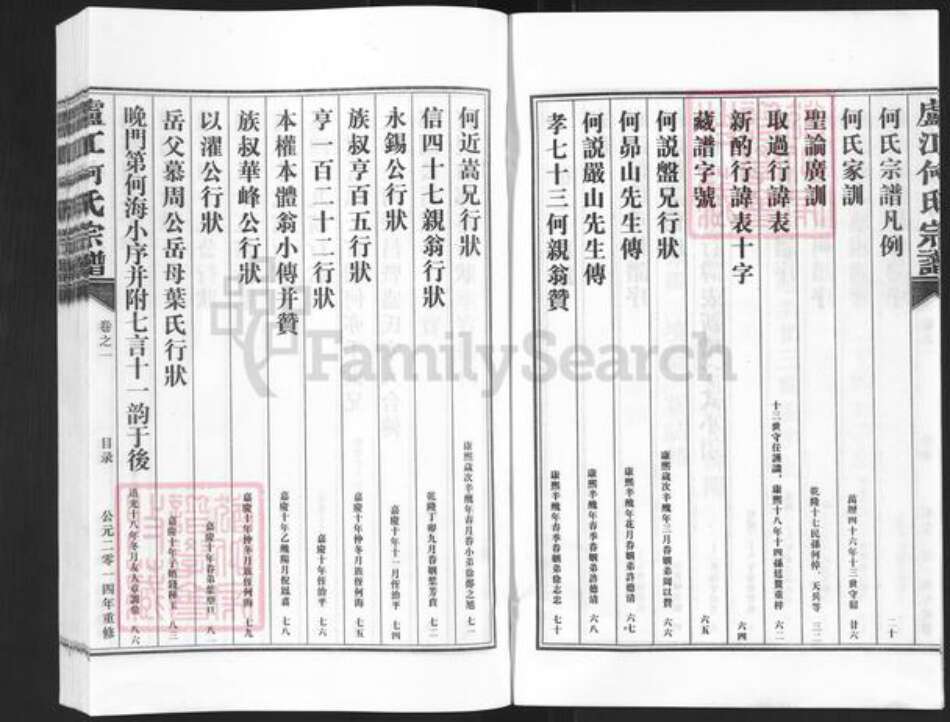 盧江何氏宗譜
何氏宗譜凡例 二十
何氏家訓 萬曆四十六年十三世守 廿六
聖諭廣訓 乾隆十七民孫何倬、天兵等 三二
取過行諱表 十三世守任謹識、康熙十八年十四孫廷贊重梓 六二
新酌行諱表十字 六四
藏譜字號 六五
何說盤兄行狀 康熙歲次辛醜年三月眷姻弟周以贊 六六
何昴山先生傳 康熙辛醜年花月眷姻弟許德清 六七
何説嚴山先生傳 康熙辛醜年春季眷姻弟許德清 六八
孝七十三何親翁贊 康熙辛醜年春季眷姻弟徐志忠 七十
何近嵩兄行狀 康熙歲次辛醜年春月眷小弟徐鄰之旭 七一
信四十七親翁行狀 乾隆丁卯九月眷姻葉芳賁 七二
永錫公行狀 嘉慶十年十一月侄治平 七四
族叔亨百五行狀 嘉慶十年仲冬月族侄何海 七五
亨一百二十二行狀 嘉慶十年侄治平 七六
本權本體翁小傳并贊 嘉慶十年乙醜陽月祝鳳喜 七八
族叔華峰公行狀 嘉慶十年仲冬月族侄何海 七九
以濯公行狀 嘉慶十年眷弟葉 八一
岳父慕周公岳母葉氏行狀 嘉慶十年子婿錢 八三
晚門第何海小序并附七言十一韵于後 道光十八年冬月友人章 八六
盧江何氏宗譜 卷之一 目录 公元二零一四年重修
FamilySearch